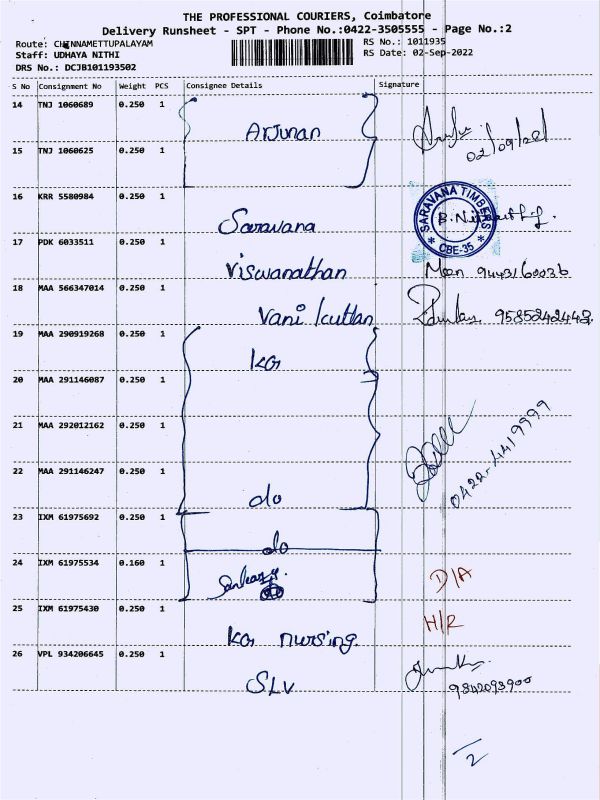 THE PROFESSIONAL COURIERS, Coimbatore
Delivery Runsheet - SPT - Phone No.:0422-3505555 - Page No.:2
Route: CHINNAMETTUPALAYAM RS No.: 1011935
Staff: UDHAYA NITHI RS Date: 02-Sep-2022
DRS No.: DCJB101193502
S No Consignment No Weight PCS Consignee Details Signature
14 TNJ 1060689 0.250 1
Arjunan
02/09/22
15 TNJ 1060625 0.250 1
16 KRR 5580984 0.250 1
SARAVANA TIMBERS
CBE-35
Saravana
17 PDK 6033511 0.250 1
Viswanathan 9443160036
18 MAA 566347014 0.250 1
Vani kuttan 9585242443
19 MAA 290919268 0.250 1
KG
20 MAA 291146087 0.250 1
21 MAA 292012162 0.250 1
0422-4419999
22 MAA 291146247 0.250 1
do
23 IXM 61975692 0.250 1
do
24 IXM 61975534 0.160 1
D/A
25 IXM 61975430 0.250 1
H/R
KG nursing
26 VPL 934206645 0.250 1
SLV 9842093900
2